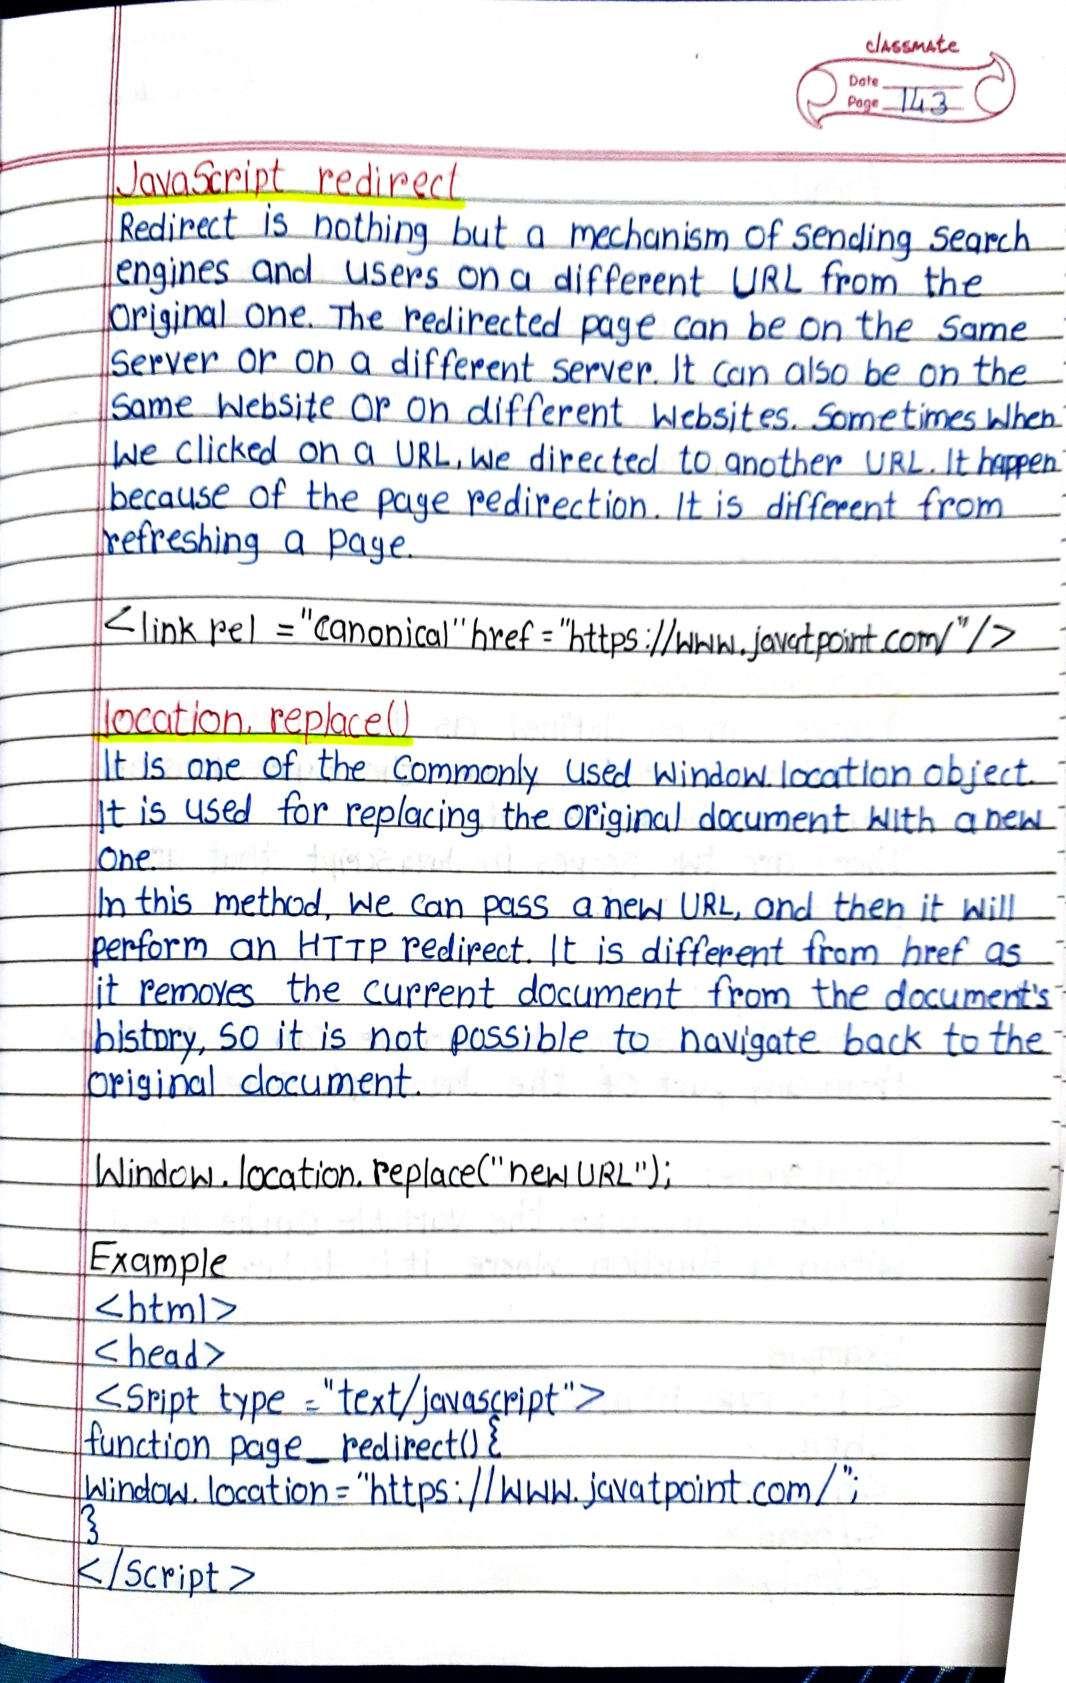 classmate
Date
Page 143
JavaScript redirect
Redirect is nothing but a mechanism of sending search
engines and users on a different URL from the
original one. The redirected page can be on the same
server or on a different server. It can also be on the
same website or on different websites. Sometimes when
we clicked on a URL, we directed to another URL. It happen
because of the page redirection. It is different from
refreshing a page.
<link rel ="canonical" href="https://www.javatpoint.com/"/>
location. replace()
It is one of the commonly used window.location object.
It is used for replacing the original document with a new
one.
In this method, we can pass a new URL, and then it will
perform an HTTP redirect. It is different from href as
it removes the current document from the document's
history, so it is not possible to navigate back to the
original document.
Window.location.replace("new URL");
Example
<html>
<head>
<Sript type ="text/javascript">
function page_redirect(){
Window.location="https://www.javatpoint.com/";
}
</Script>